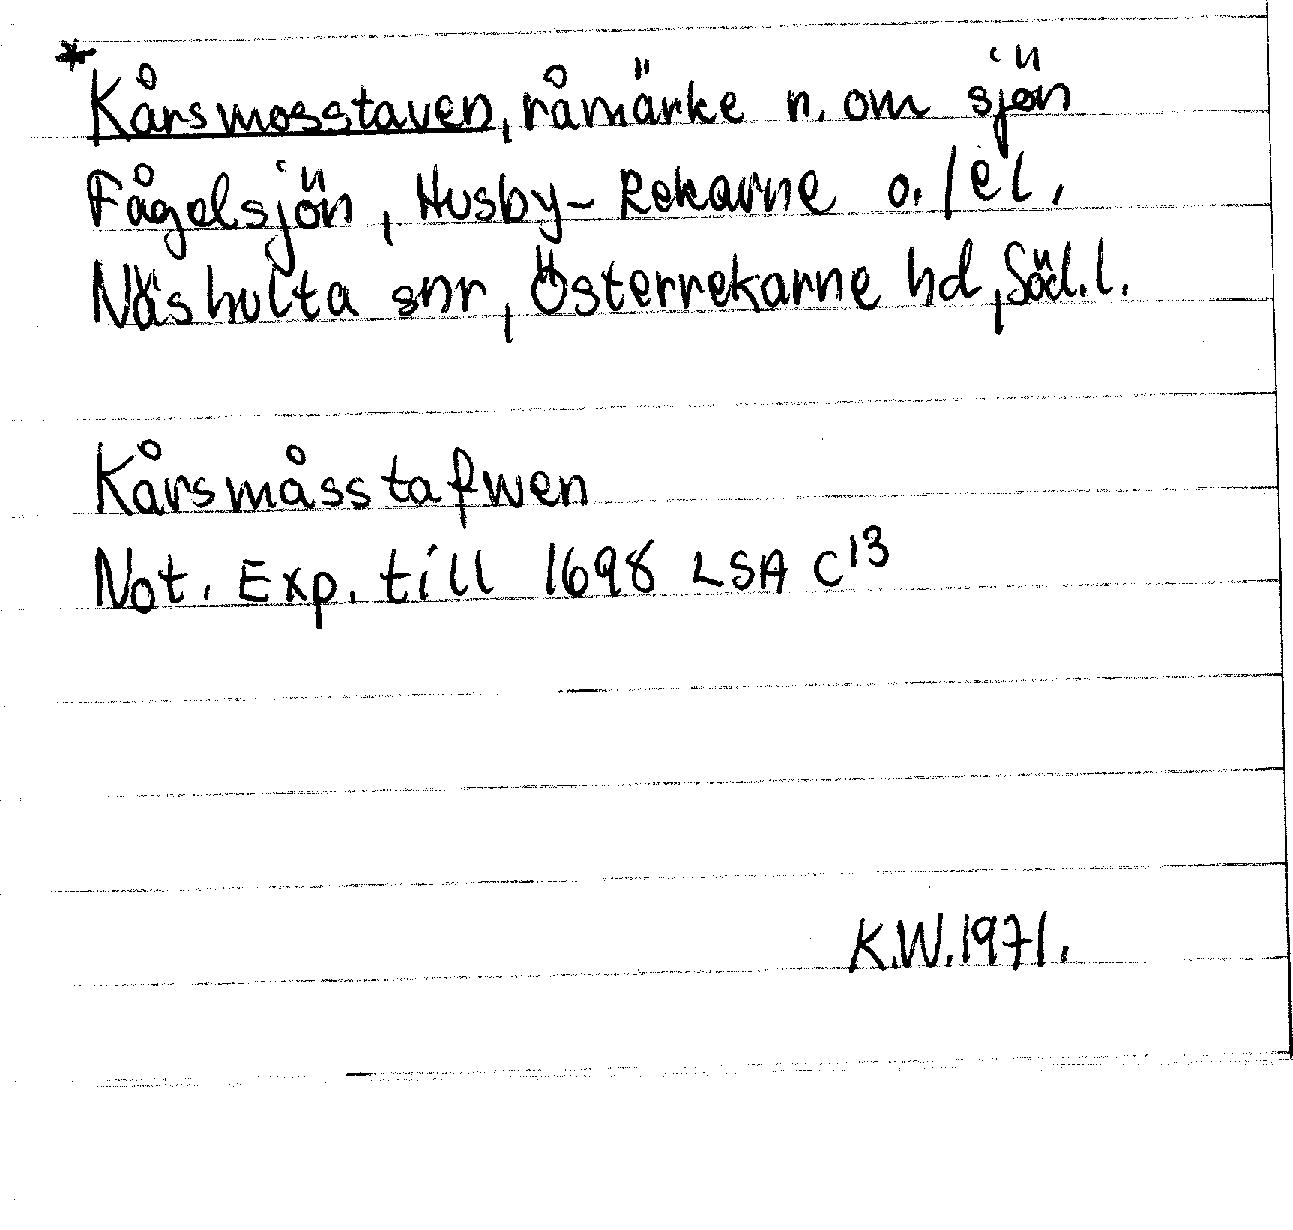 *Kårsmosstaven, råmärke n. om sjön
Fågelsjön, Husby-Rekarne o./el.
Näshulta snr, Österrekarne hd, Söd.l.
Kårsmåsstafwen
Not. Exp. till 1698 LSA C13
K.W.1971.